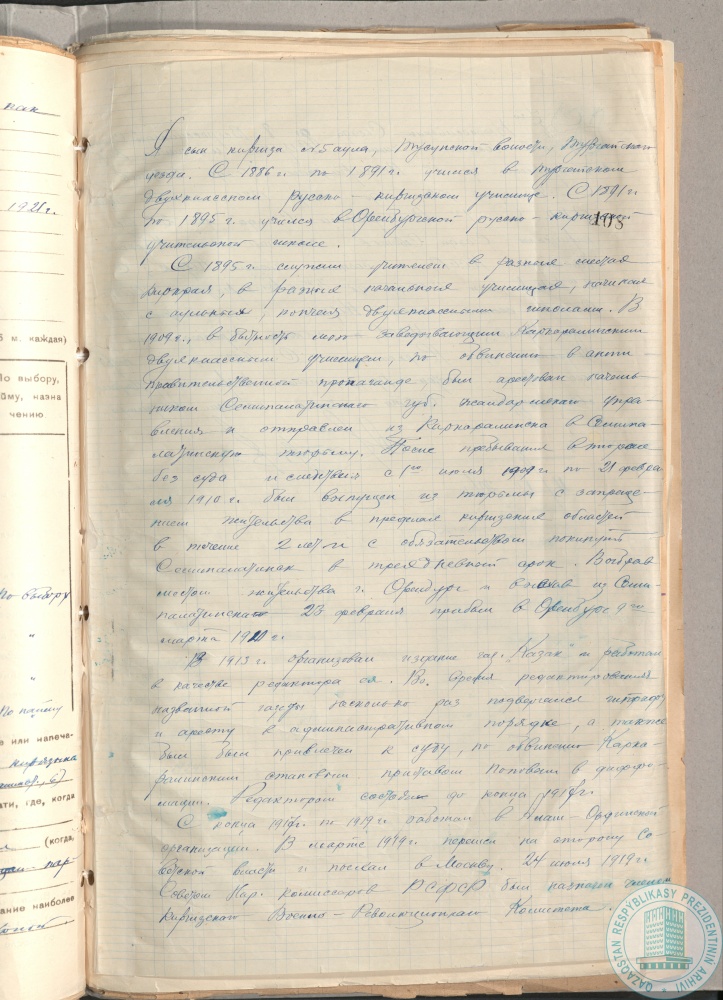 нак
1921 г.
5 м. каждая)
По выбору,
йму, назна
чению
По выбору
"
"
По найму
е или напеча-
ати, где, когда
(когда,
ание наиболее
108
Я сын киргиза №5 аула, Тусунской волости, Тургайского
уезда. С 1886 г. по 1891 г. учился в Тургайском
двухклассном русско-киргизском училище. С 1891 г.
по 1895 г. учился в Оренбургской русско-киргизской
учительской школе.
С 1895 г. служил учителем в разных местах
в разных начальных училищах, начиная
с аульных, кончая двухклассными школами. В
1909 г., в бытность мою заведовающим Каркаралинским
двухклассным училищем, по обвинению в анти
правительственной пропаганде, был арестован началь-
ником Семипалатинского губ. жандармского Упра-
вления и отправлен из Каркаралинска в Семипа-
латинскую тюрьму. После пребывания в тюрьме
без суда и следствия с 1го июля 1909 г. по 21 февра
ля 1910 г. был выпущен из тюрьмы с запреще-
нием жительства в пределах киргизских областей
в течение 2 лет и с обязательством покинуть
Семипалатинск в трехдневный срок. Выбрав
местом жительства г. Оренбург и выехав из Семи-
палатинска 23 февраля прибыл в Оренбург 9го
марта 1910 г.
В 1913 г. организовал издание газ. "Казак" и работал
в качестве редактора ея. Во время редактирования
названной газеты несколько раз подвергался штрафу
и аресту в административном порядке, а также
был был привлечен к суду, по обвинению Карка-
ралинским становым приставом Поповым в диффа-
мации. Редактором состоял до конца 1917 г.
С конца 1917 г. по 1919 г. работал в Алаш-Ордынской
организации. В марте 1919 г. перешел на сторону Со-
ветской власти и поехал в Москву. 24 июля 1919 г.
Советом Нар. комиссаров РСФСР был назначен членом
Киргизского Военно-Революционного Комитета.
QAZAQSTAN RESPÝBLIKASY PREZIDENTINIŃ ARHIVI